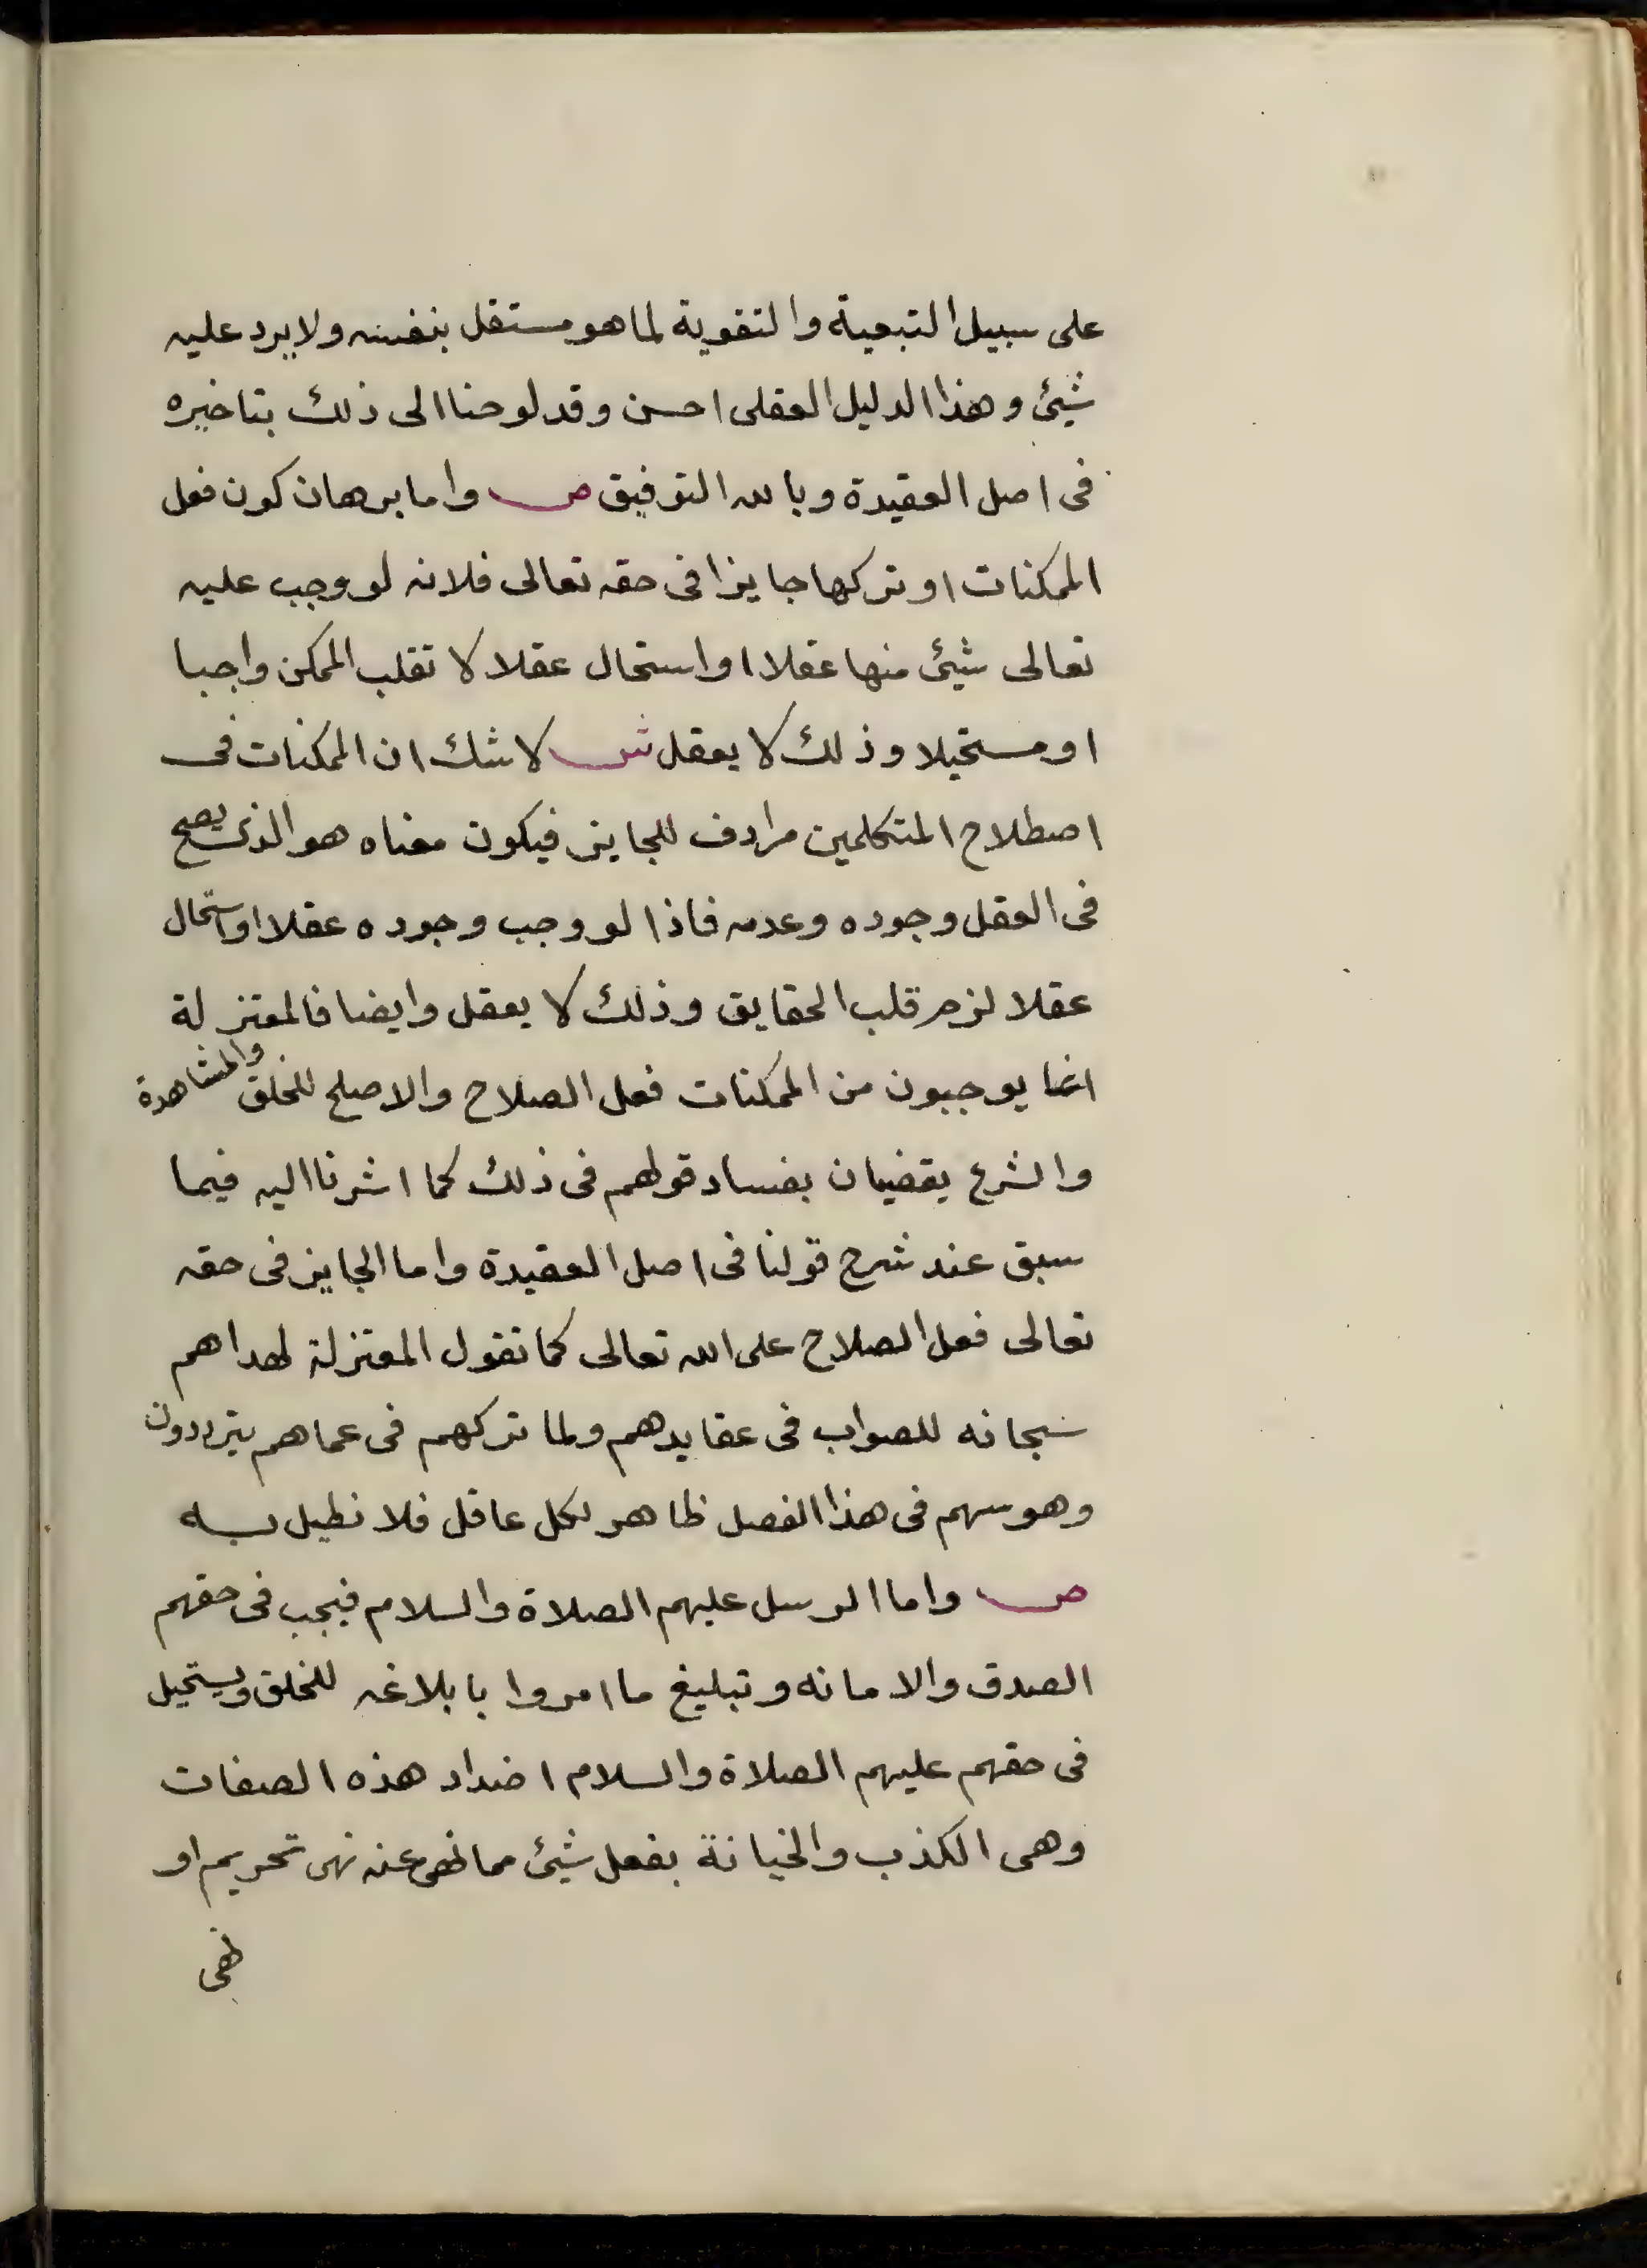 على سبيل التبعية والتقوية لما هو مستقل بنفسه ولا يرد عليه
شيئ وهذا الدليل العقلى احسن وقد لوحنا الى ذلك بتاخيره
فى اصل العقيدة وبالله التوفيق ص واما برهان كون فعل
الممكنات او تركها جايزا فى حقه تعالى فلانه لو وجب عليه
تعالى شيئ منها عقلا او استحال عقلا لا نقلب الممكن واجبا
او مستحيلا وذلك لا يعقل ش لا شك ان الممكنات فى
اصطلاح المتكلمين مرادف للجايز فيكون معناه هو الذى يصح
فى العقل وجوده وعدمه فاذا لو وجب وجوده عقلا او استحال
عقلا لزم قلب الحقايق وذلك لا يعقل وايضا فالمعتزلة
انما يوجبون من الممكنات فعل الصلاح والاصلح للخلق والمشاهدة
والشرع يقضيان بفساد قولهم فى ذلك كما اشرنا اليه فيما
سبق عند شرح قولنا فى اصل العقيدة واما الجايز فى حقه
تعالى فعل الصلاح على الله تعالى كما تقول المعتزلة لهداهم
سبحانه للصواب فى عقايدهم ولما تركهم فى عماهم يترددون
وهوسهم فى هذا الفصل ظاهر لكل عاقل فلا نطيل به
ص واما الرسل عليهم الصلاة والسلام فيجب فى حقهم
الصدق والامانه وتبليغ ما امروا بابلاغه للخلق ويستحيل
فى حقهم عليهم الصلاة والسلام اضداد هذه الصفات
وهى الكذب والخيانة بفعل شيئ مما نهى عنه نهى تحريم او
نهى